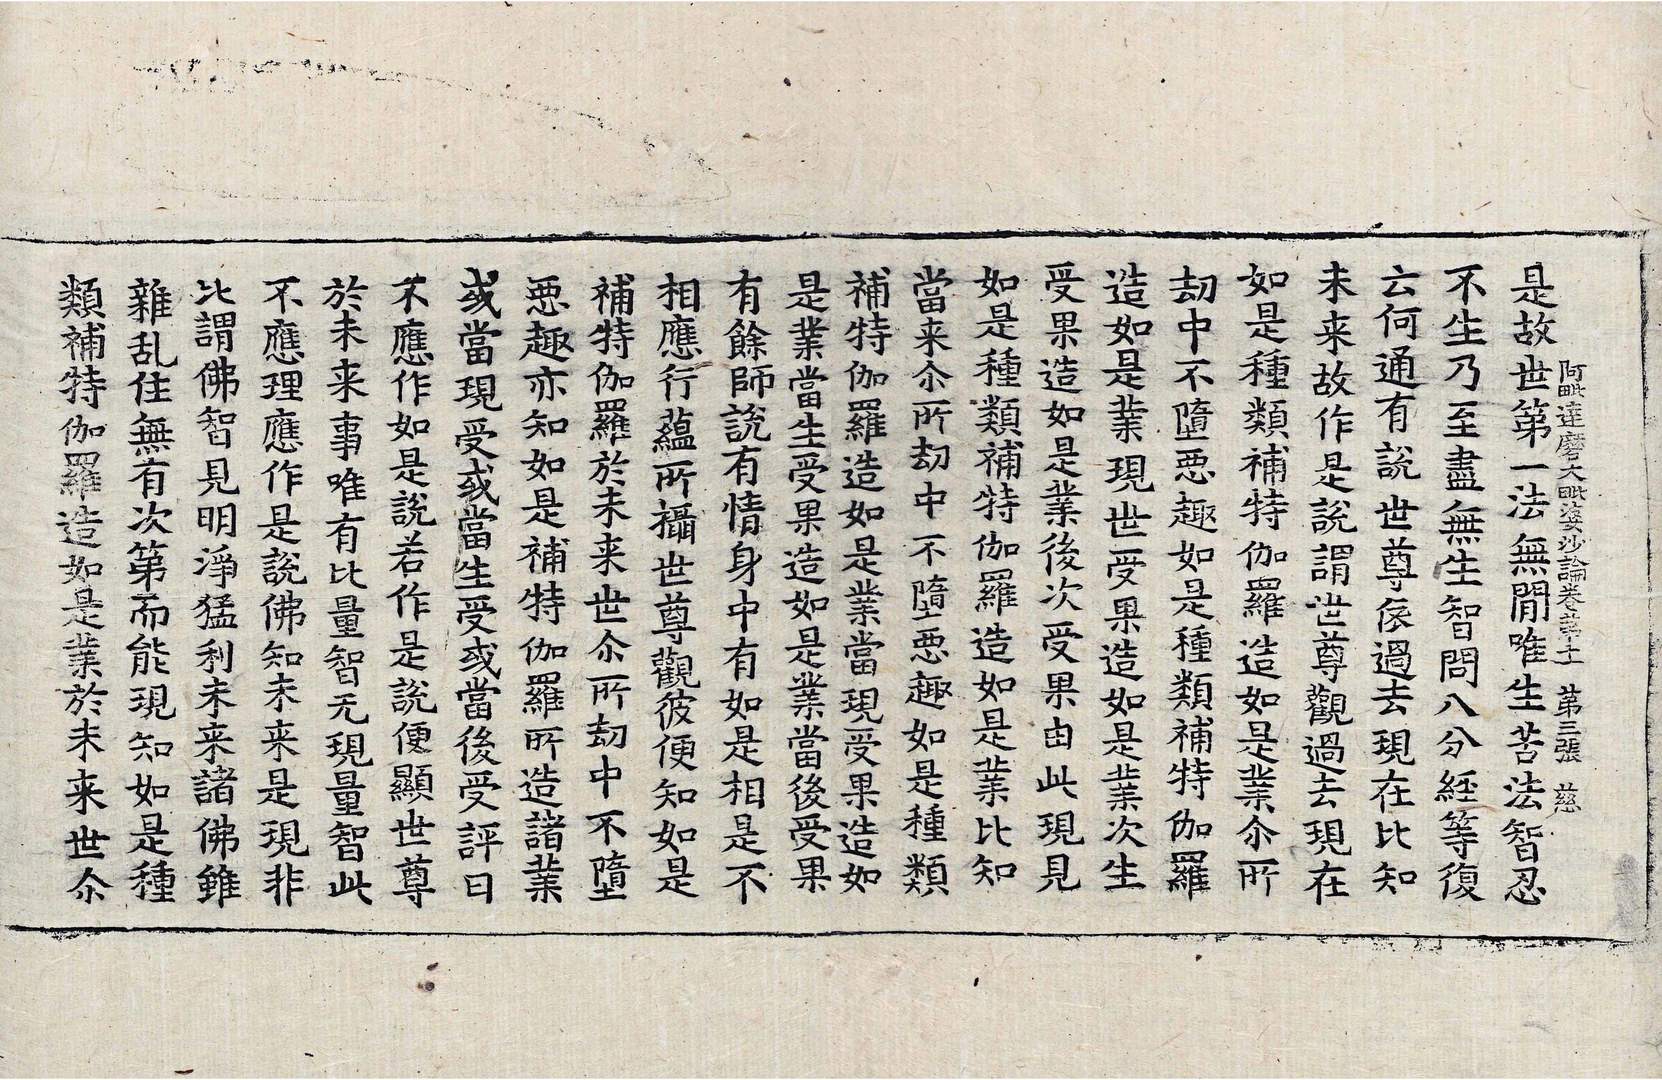 阿毗達磨大毗婆沙論卷第十一　第三張　慈
是故世第一法無間唯生苦法智忍
不生乃至盡無生智問八分經等復
云何通有說世尊依過去現在比知
未来故作是說謂世尊觀過去現在
如是種類補特伽羅造如是業尒所
劫中不墮惡趣如是種類補特伽羅
造如是業現世受果造如是業次生
受果造如是業後次受果由此現見
如是種類補特伽羅造如是業比知
當来尒所劫中不墮惡趣如是種類
補特伽羅造如是業當現受果造如
是業當生受果造如是業當後受果
有餘師說有情身中有如是相是不
相應行蘊所攝世尊觀彼便知如是
補特伽羅於未来世尒所劫中不墮
惡趣亦知如是補特伽羅所造諸業
或當現受或當生受或當後受評曰
不應作如是說若作是說便顯世尊
於未来事唯有比量智无現量智此
不應理應作是說佛知未来是現非
比謂佛智見明淨猛利未来諸佛雖
雜乱住無有次第而能現知如是種
類補特伽羅造如是業於未来世尒